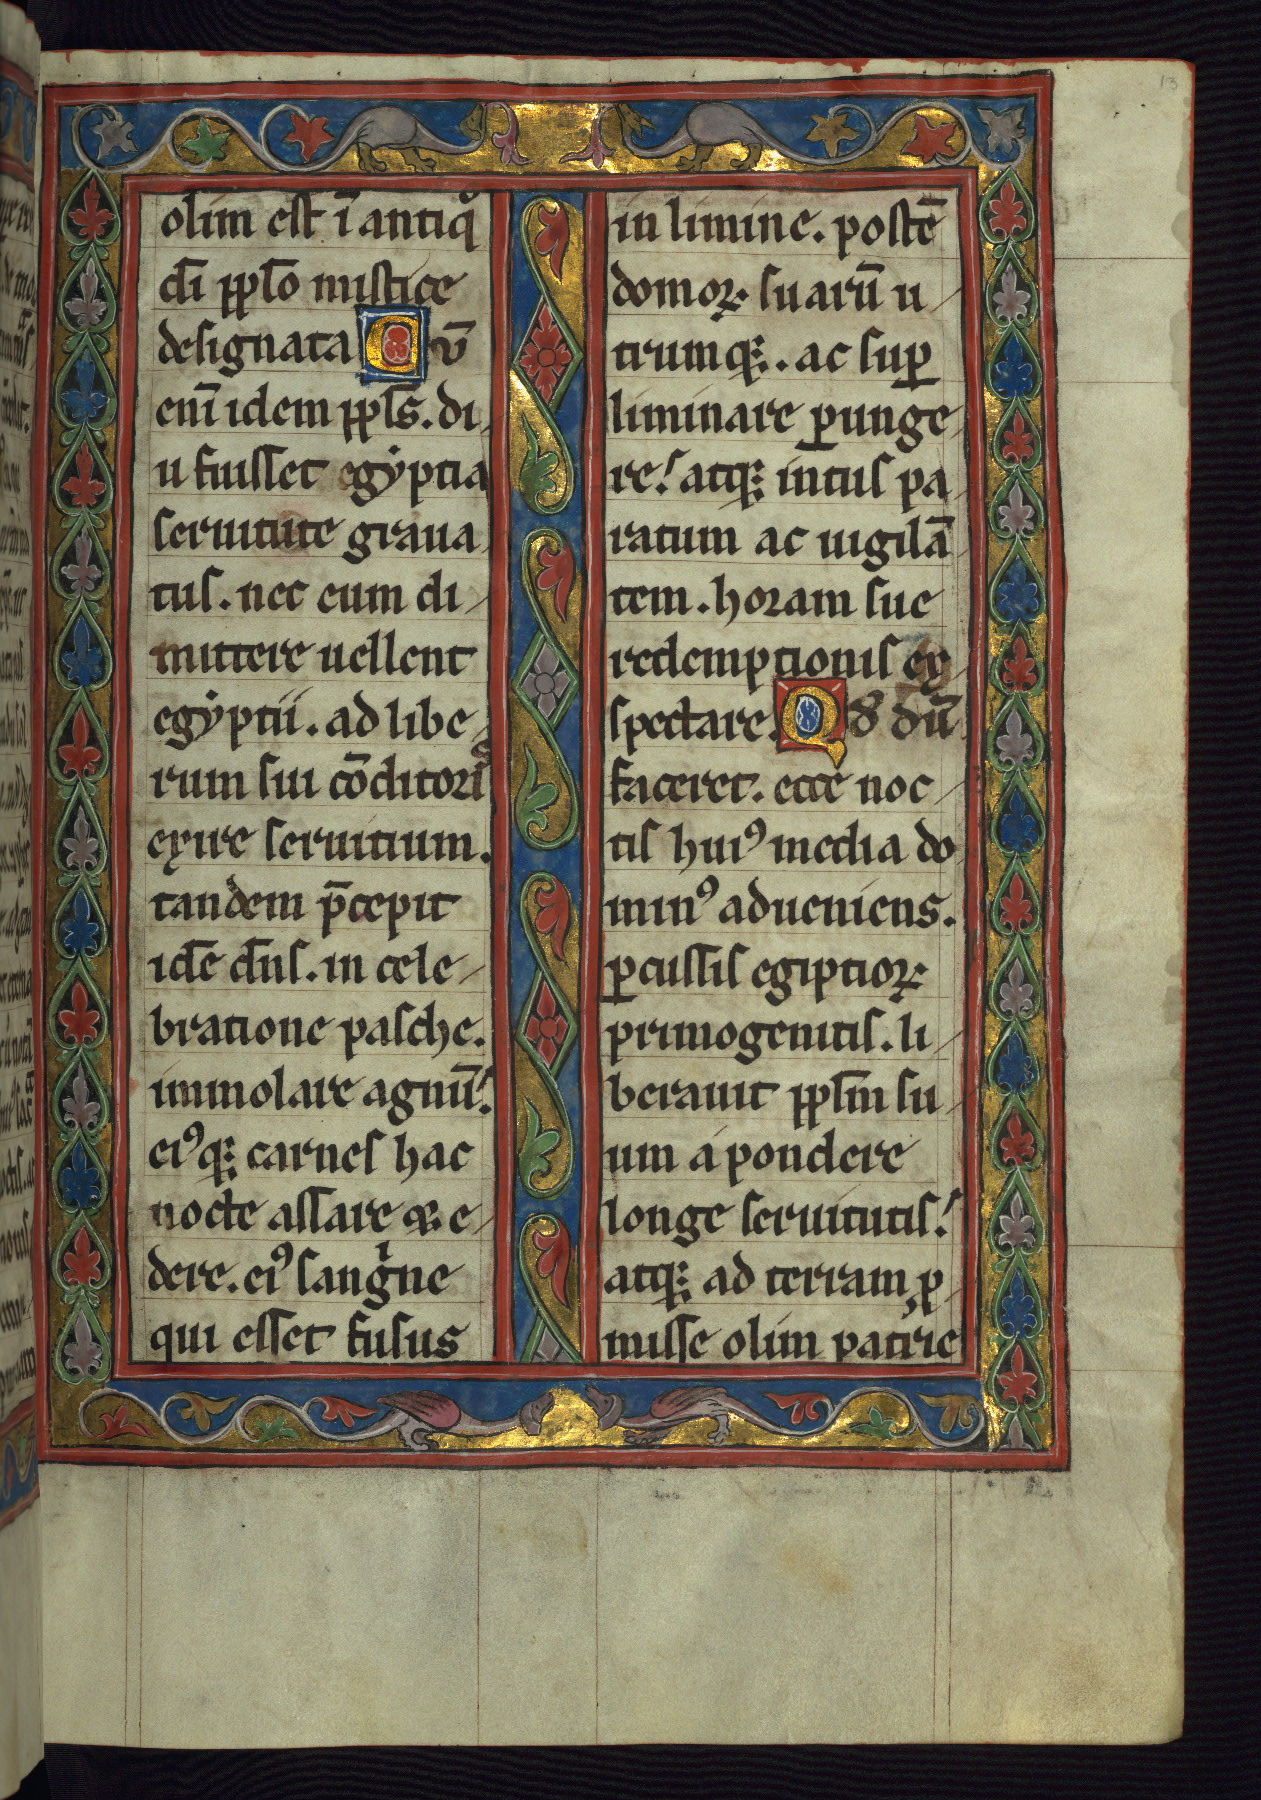 13
olim est ī antiq̊
dī pp̱lo mistice
designata Cū
enī idem pp̱ls. di
u fuisset egẏptia
seruitute graua
tus. nec eum di
mittere uellent
egẏptii. ad libe
rum sui cōditorıs
exire seruitium.
tandem p̄cepit
idē dn̄s. in cele
bratione pasche.
immolare agnū.
eiꝰqꝫ carnes hac
nocte assare qꝫ e
dere. eiꝰ sangͥne
qui esset fusus
in limine. postē
domoꝝ suarū u
trumqꝫ. ac suꝑ
liminare ꝑunge
re. atqꝫ intus pa
ratum ac uigilā
tem. horam sue
redemptionis ex
spectare. Qd̄ dū
faceret. ecce noc
tis huiꝰ media do
minꝰ adueniens.
ꝑcussis egiptioꝝ
primogenitis. li
berauit pp̱lm su
um a pondere
longe seruitutis.
atqꝫ ad terram ꝓ
misse olim patrie